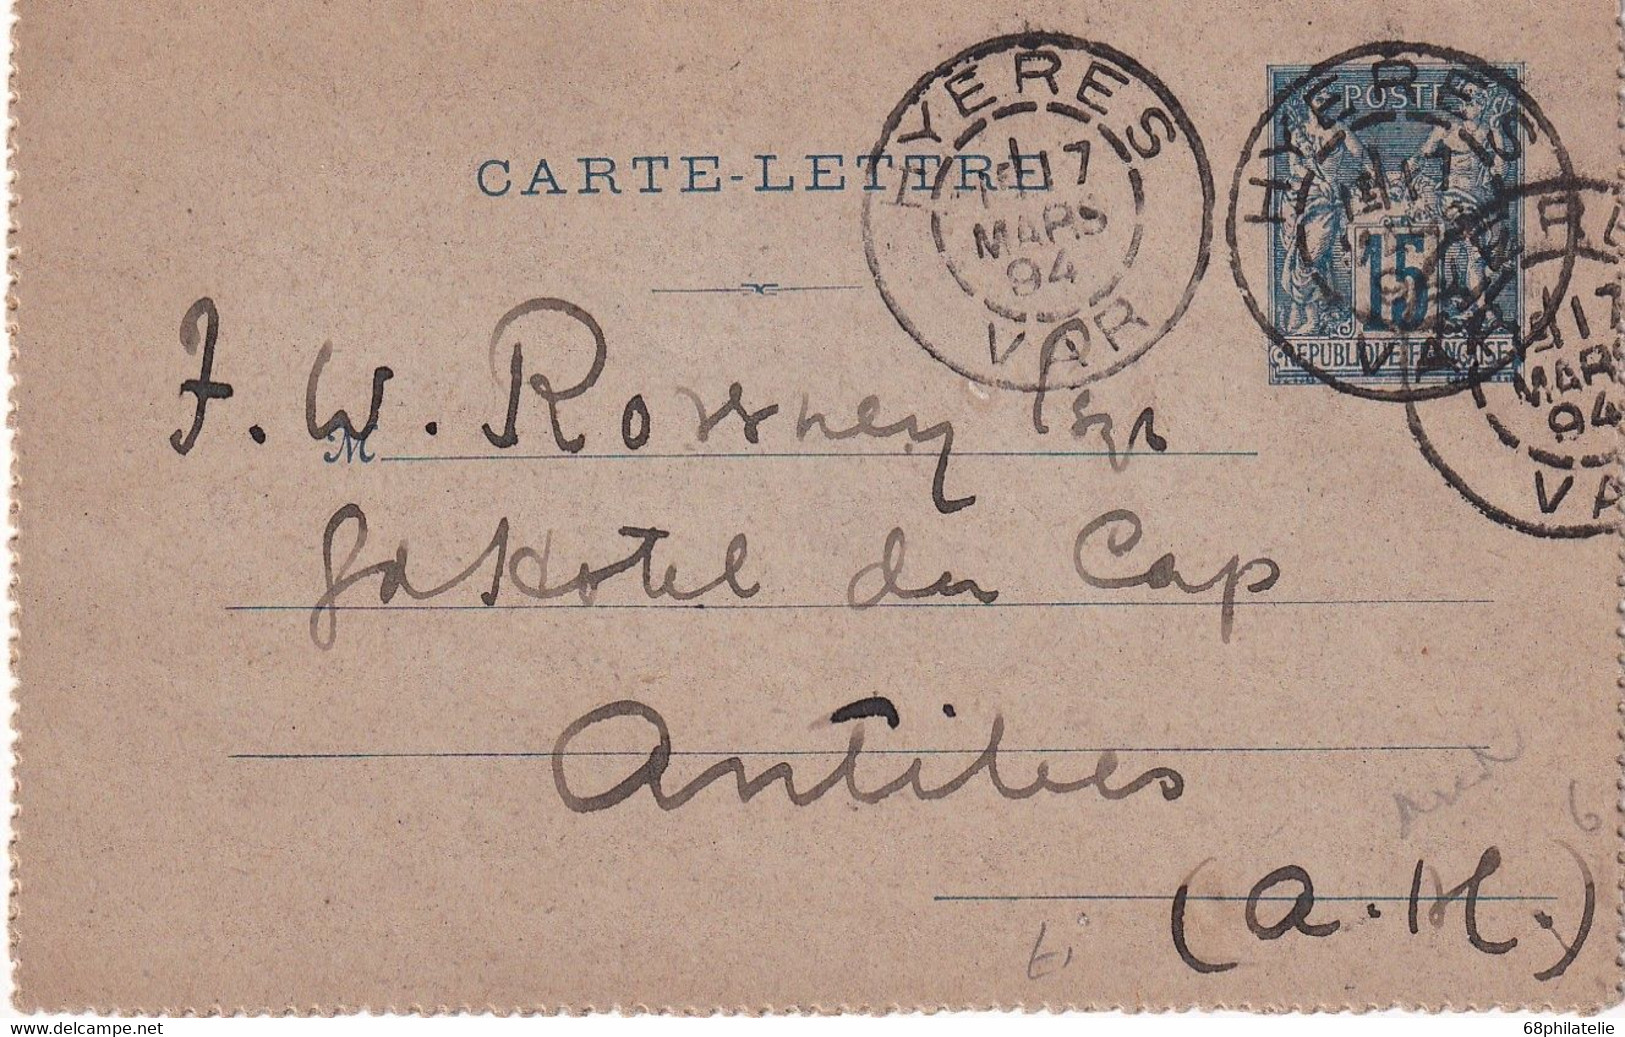 HYERES
1E 17
MARS
94
VAR
HYERES
1E 17
VAR
POSTES
15
REPUBLIQUE FRANÇAISE
17
MARS
94
VA
CARTE-LETTRE
M
J. W. Rowney Esqr
Gd Hotel du Cap
Antibes
(A. M.)
6
www.delcampe.net
68philatelie